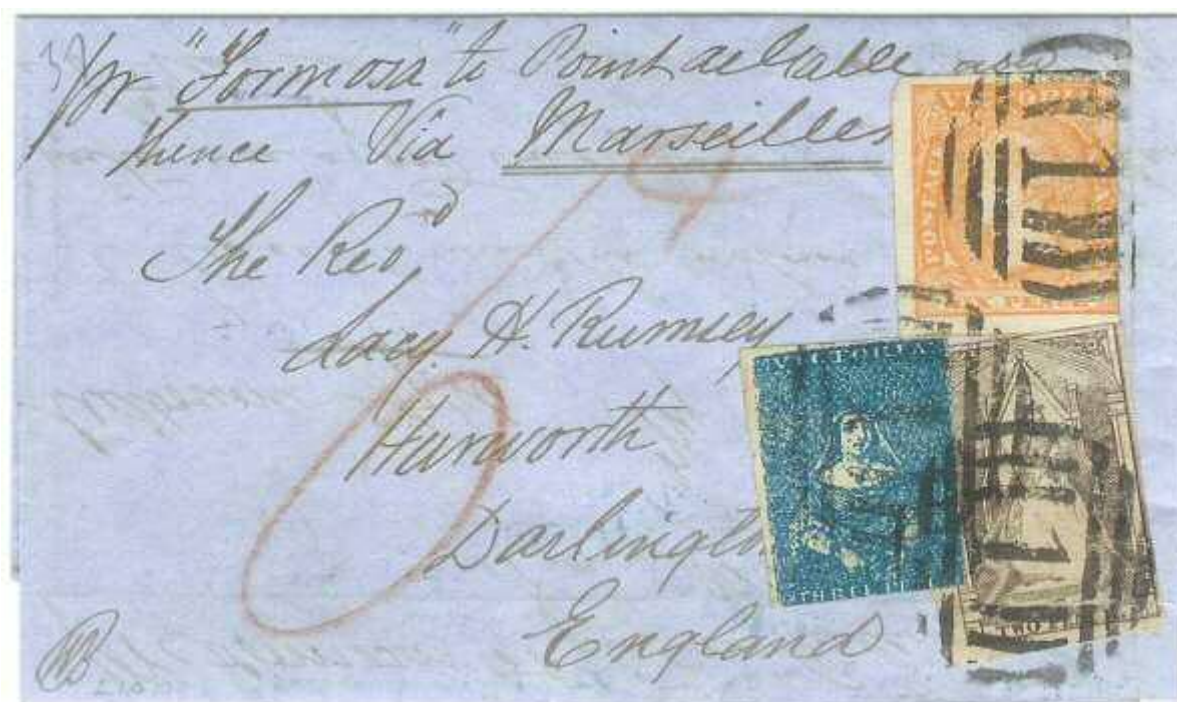 pr "Formosa" to Point de Galle and
thence Via Marseilles
The Revd
Lacy H. Rumsey
Hurworth
Darlington
England
VICTORIA
POSTAGE
SIX PENCE
1
VICTORIA
THREE PENCE
TWO
1
6